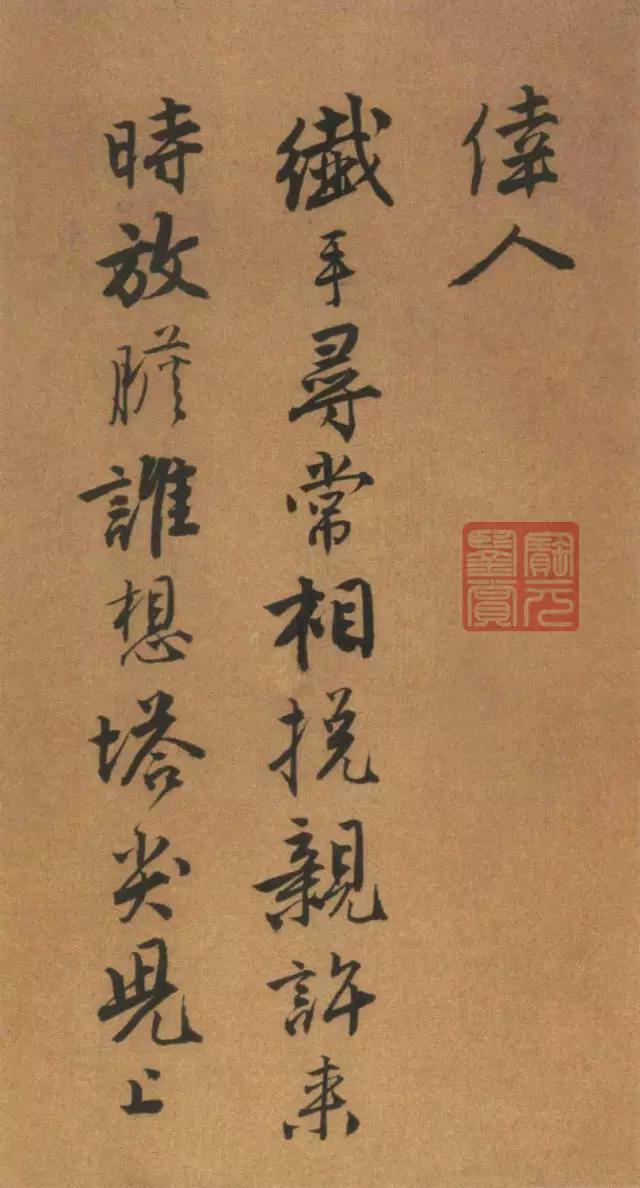 偉人
纖手尋常相挽親許来
時放膽誰想塔尖兒上
元
鑒賞